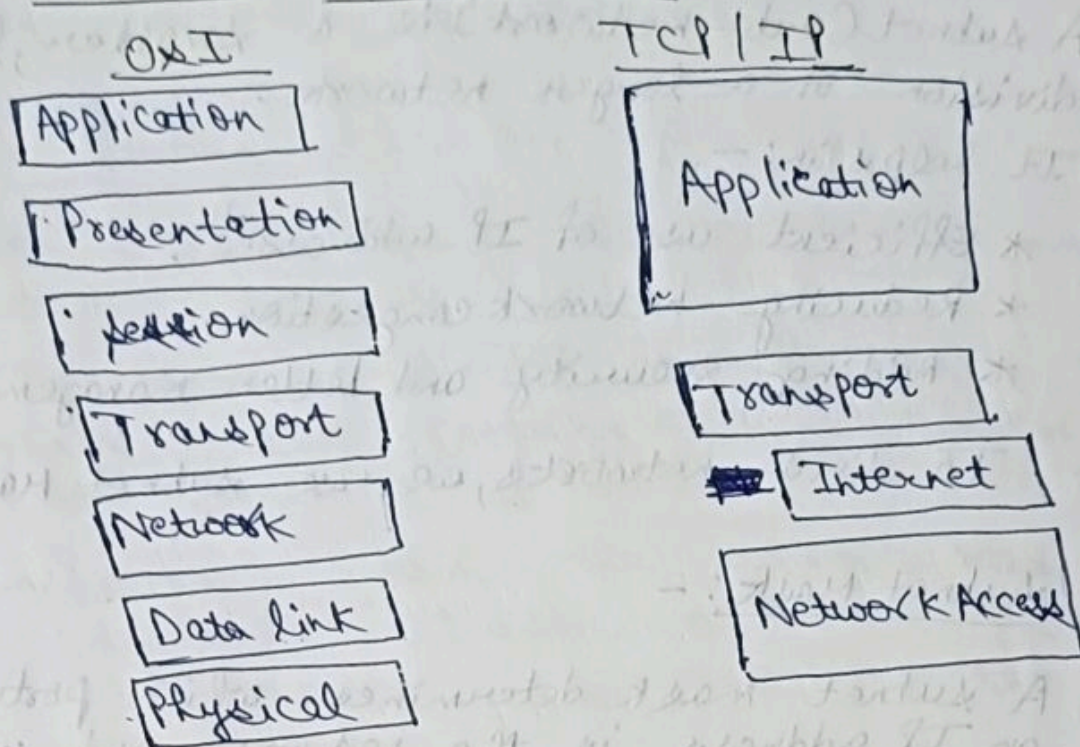 OSI
Application
Presentation
session
Transport
Network
Data link
Physical
TCP/IP
Application
Transport
Internet
Network Access